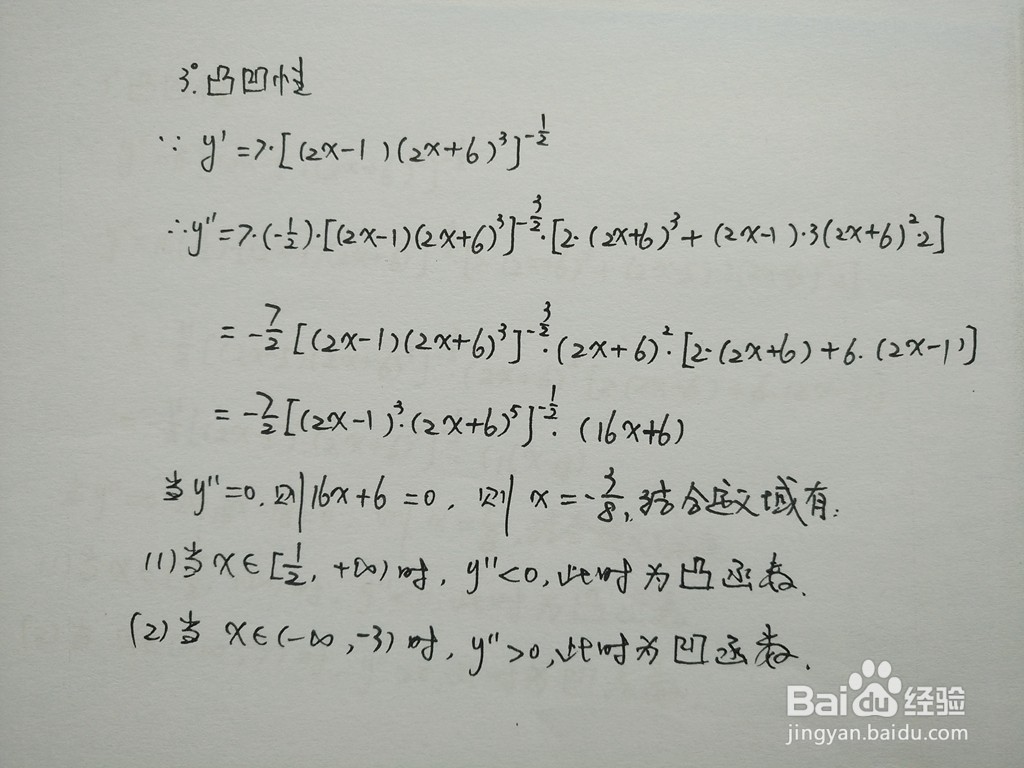 3°. 凸凹性
∵ y' = 7·[(2x-1)(2x+6)³]^{-1/2}
∴ y'' = 7·(-1/2)·[(2x-1)(2x+6)³]^{-3/2}·[2·(2x+6)³ + (2x-1)·3(2x+6)²·2]
= -7/2 [(2x-1)(2x+6)³]^{-3/2}·(2x+6)²·[2·(2x+6) + 6·(2x-1)]
= -7/2 [(2x-1)³·(2x+6)⁵]^{-1/2}·(16x+6)
当 y''=0, 则 16x+6=0, 则 x=-3/8, 结合定义域有:
(1) 当 x∈[1/2, +∞) 时, y''<0, 此时为凸函数.
(2) 当 x∈(-∞, -3) 时, y''>0, 此时为凹函数.
Baidu 经验
jingyan.baidu.com